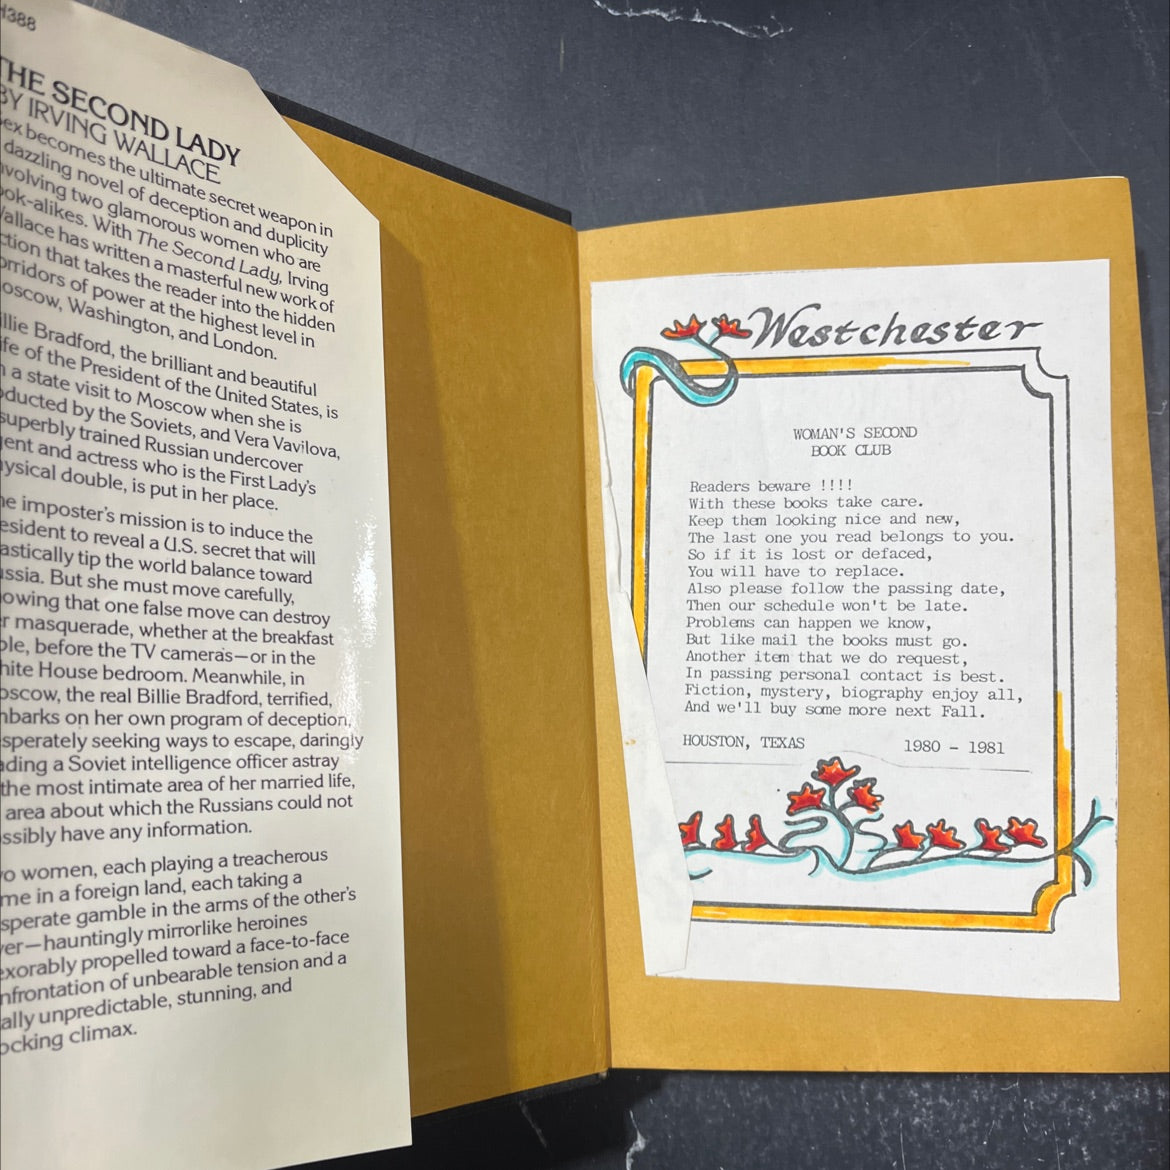 H388
THE SECOND LADY
BY IRVING WALLACE
Sex becomes the ultimate secret weapon in
dazzling novel of deception and duplicity
involving two glamorous women who are
look-alikes. With The Second Lady, Irving
Wallace has written a masterful new work of
fiction that takes the reader into the hidden
corridors of power at the highest level in
Moscow, Washington, and London.
Billie Bradford, the brilliant and beautiful
wife of the President of the United States, is
on a state visit to Moscow when she is
abducted by the Soviets, and Vera Vavilova,
superbly trained Russian undercover
agent and actress who is the First Lady's
physical double, is put in her place.
The imposter's mission is to induce the
President to reveal a U.S. secret that will
drastically tip the world balance toward
Russia. But she must move carefully,
knowing that one false move can destroy
her masquerade, whether at the breakfast
table, before the TV cameras—or in the
White House bedroom. Meanwhile, in
Moscow, the real Billie Bradford, terrified,
embarks on her own program of deception,
desperately seeking ways to escape, daringly
leading a Soviet intelligence officer astray
the most intimate area of her married life,
area about which the Russians could not
possibly have any information.
Two women, each playing a treacherous
game in a foreign land, each taking a
desperate gamble in the arms of the other's
lover—hauntingly mirrorlike heroines
inexorably propelled toward a face-to-face
confrontation of unbearable tension and a
totally unpredictable, stunning, and
shocking climax.
Westchester
WOMAN'S SECOND
BOOK CLUB
Readers beware !!!!
With these books take care.
Keep them looking nice and new,
The last one you read belongs to you.
So if it is lost or defaced,
You will have to replace.
Also please follow the passing date,
Then our schedule won't be late.
Problems can happen we know,
But like mail the books must go.
Another item that we do request,
In passing personal contact is best.
Fiction, mystery, biography enjoy all,
And we'll buy some more next Fall.
HOUSTON, TEXAS 1980 - 1981